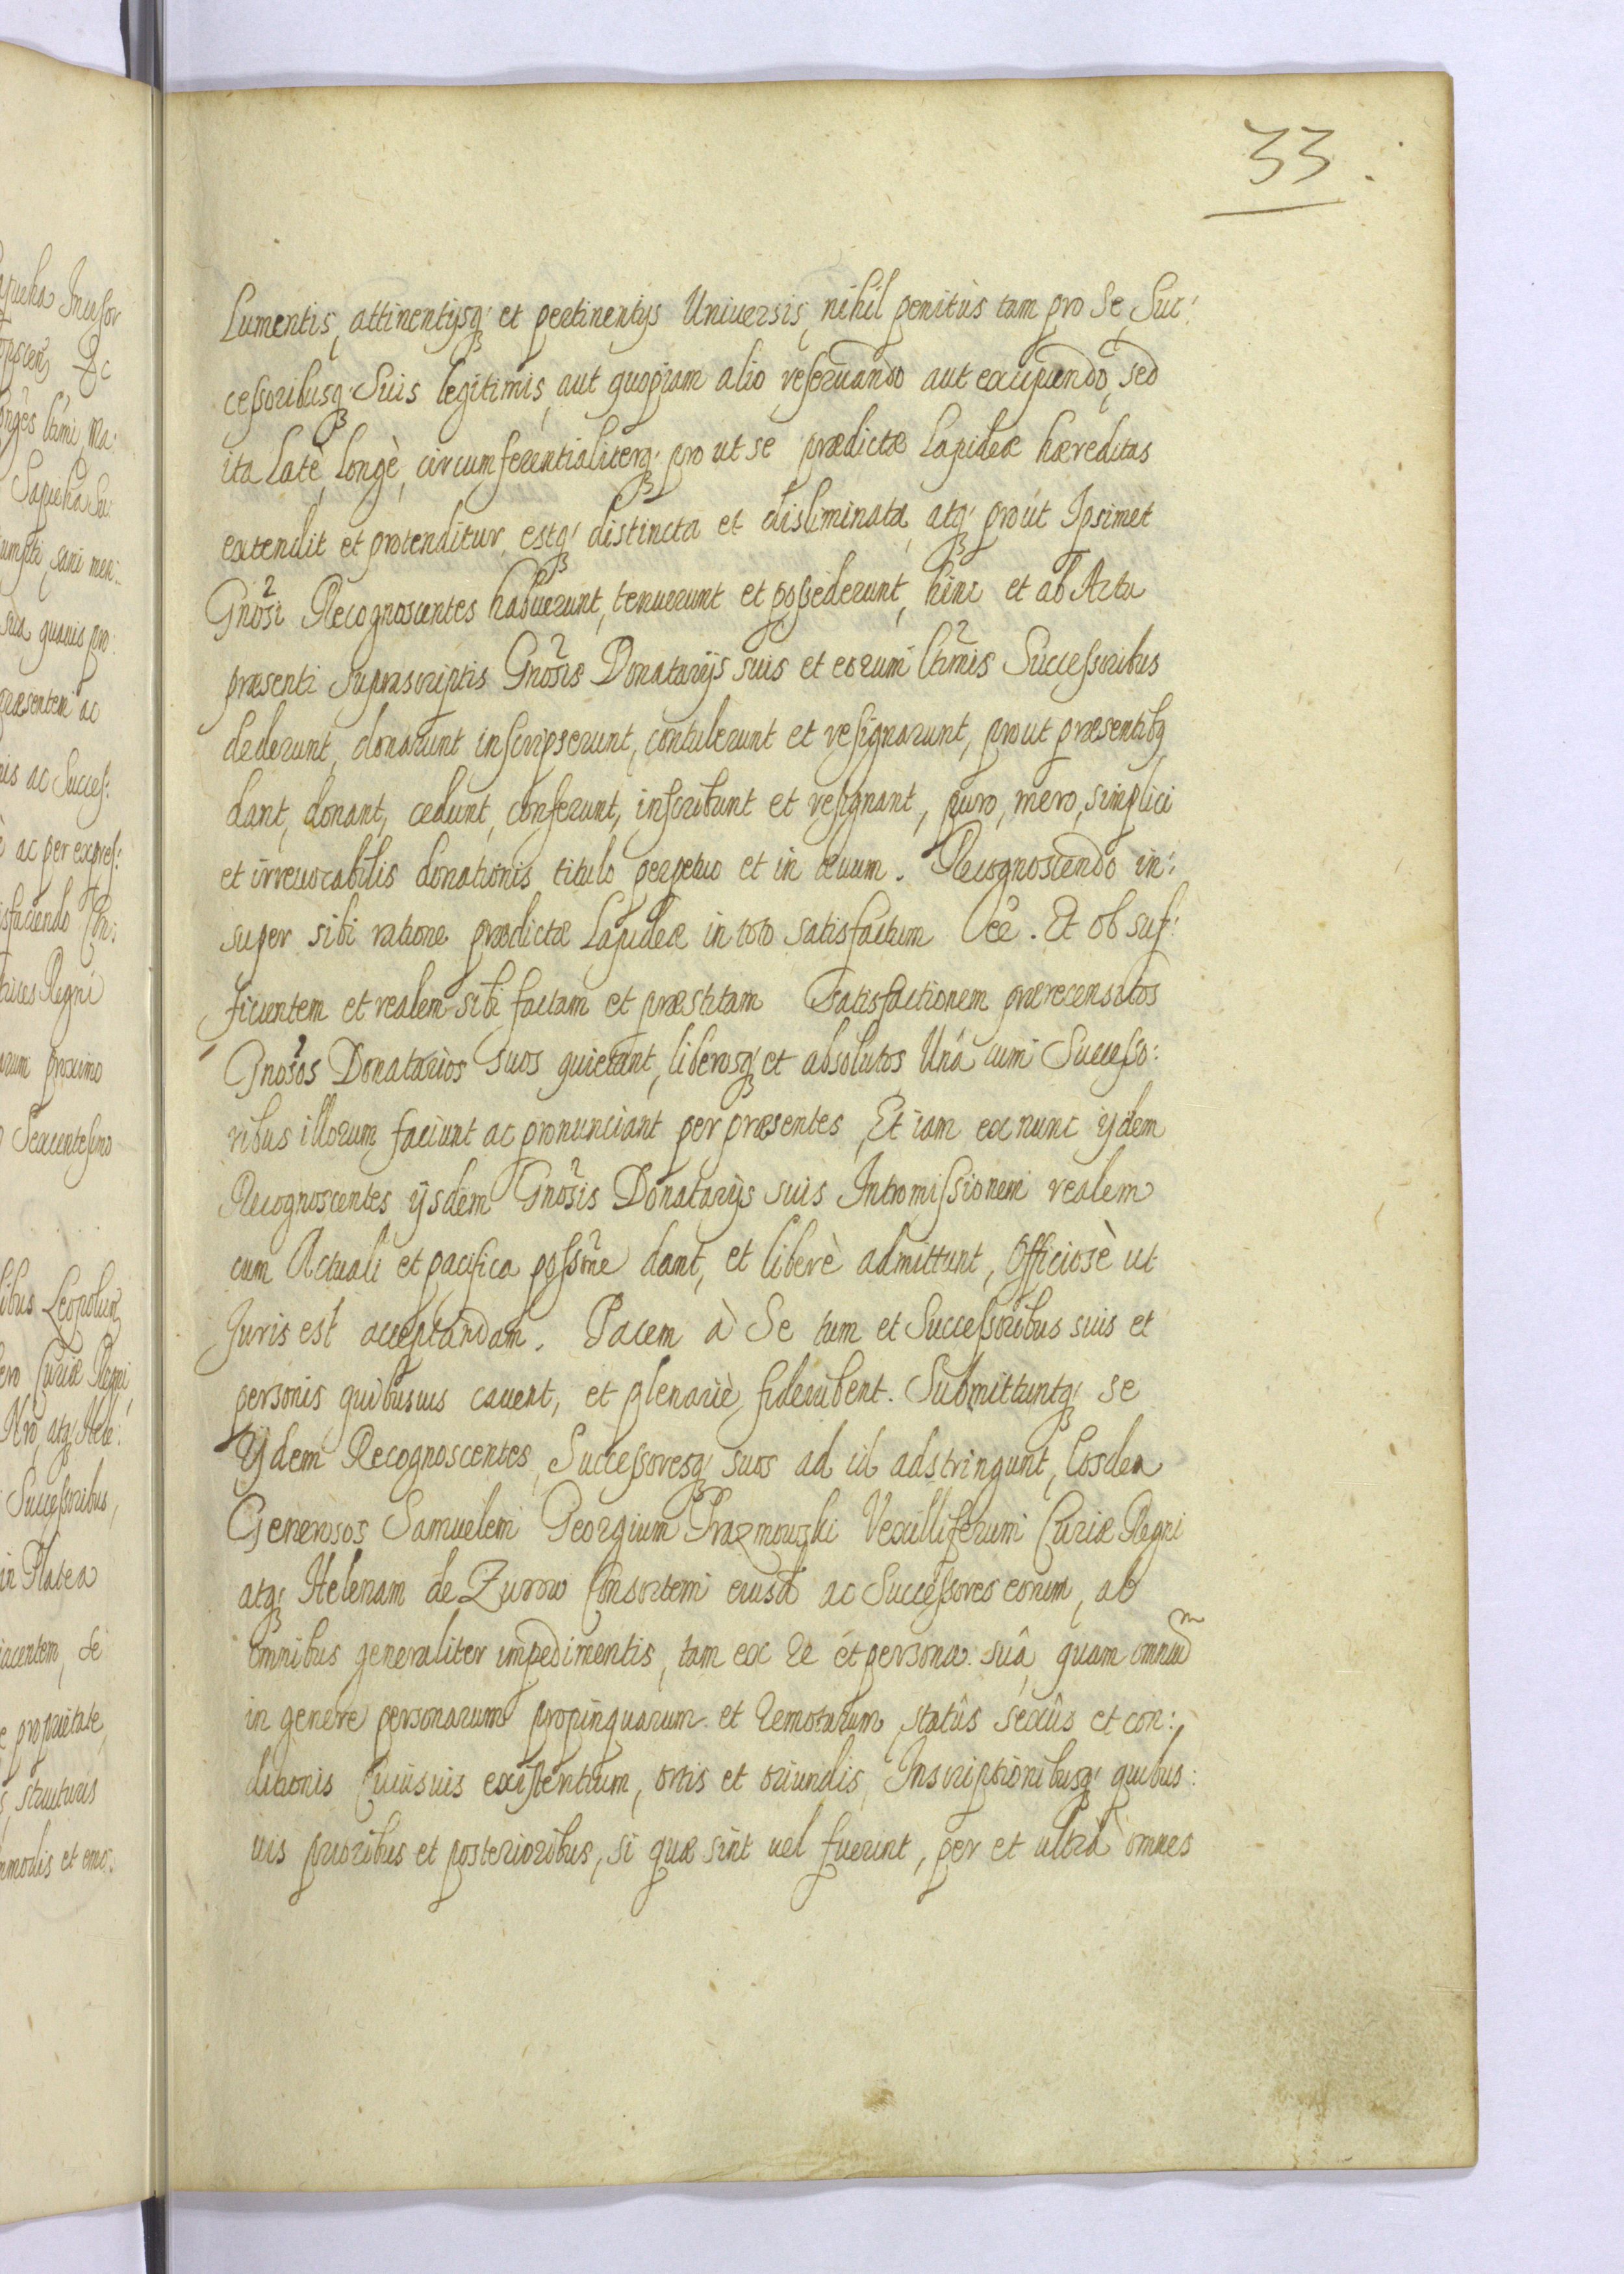 33.
Lumentis, attinentijsq; et pertinentijs Uniuersis, nihil penitùs tam pro Se, Suc:
cessoribusq; Suis legitimis, aut quopiam alio reseruando aut excipiendo, sed
ita Latè, Longè, circumferentialiterq; pro ut se prædictæ Lapideæ hæreditas
extendit et protenditur, estq; distincta et disliminata, atq; proùt Ipsimet
Gnosi Recognoscentes habuerunt, tenuerunt et possederunt, hinc et ab Actu
præsenti suprascriptis Gnosis Donatarijs suis et eorum ltimis Successoribus
dederunt, donarunt inscripserunt, contulerunt et resignarunt, prout præsentibq
dant, donant, cedunt, conferunt, inscribunt et resignant, puro, mero, simplici
et irreuocabilis donationis titulo perpetuo et in æuum. Recognoscendo in:
super sibi ratione prædictæ Lapideæ in toto satisfactum ee. Et ob suf:
ficientem et realem sibi factam et præstitam Satisfactionem prærecensitos
Gnosos Donatarios suos quietant, liberosq; et absolutos Unà cum Successo:
ribus illorum faciunt ac pronunciant per præsentes, Et iam ex nunc ijdem
Recognoscentes ijsdem Gnosis Donatarijs suis Intromissionem realem
cum Actuali et pacifica possne dant, et liberè admittunt, Officiosè ut
Juris est acceptandam. Pacem à Se tum et Successoribus suis et
personis quibusuis cauent, et plenariè fideiubent. Submittuntq; se
Ijdem Recognoscentes, Successoresq; suos ad id adstringunt, Eosdem
Generosos Samuelem Georgium Prazmowski Vexilliferum Curiæ Regni
atq; Helenam de Zurow Consortem eiusd ac Successores eorum, ab
omnibus generaliter impedimentis, tam ex re et persona suâ, quam omnium
in genere personarum propinquarum et remotarum, statûs sexûs et con:
ditionis Cuiusuis existentium, ortis et oriundis, Inscriptionibusq; quibus:
uis prioribus et posterioribus, si quæ sint uel fuerint, per et ultrà omnes